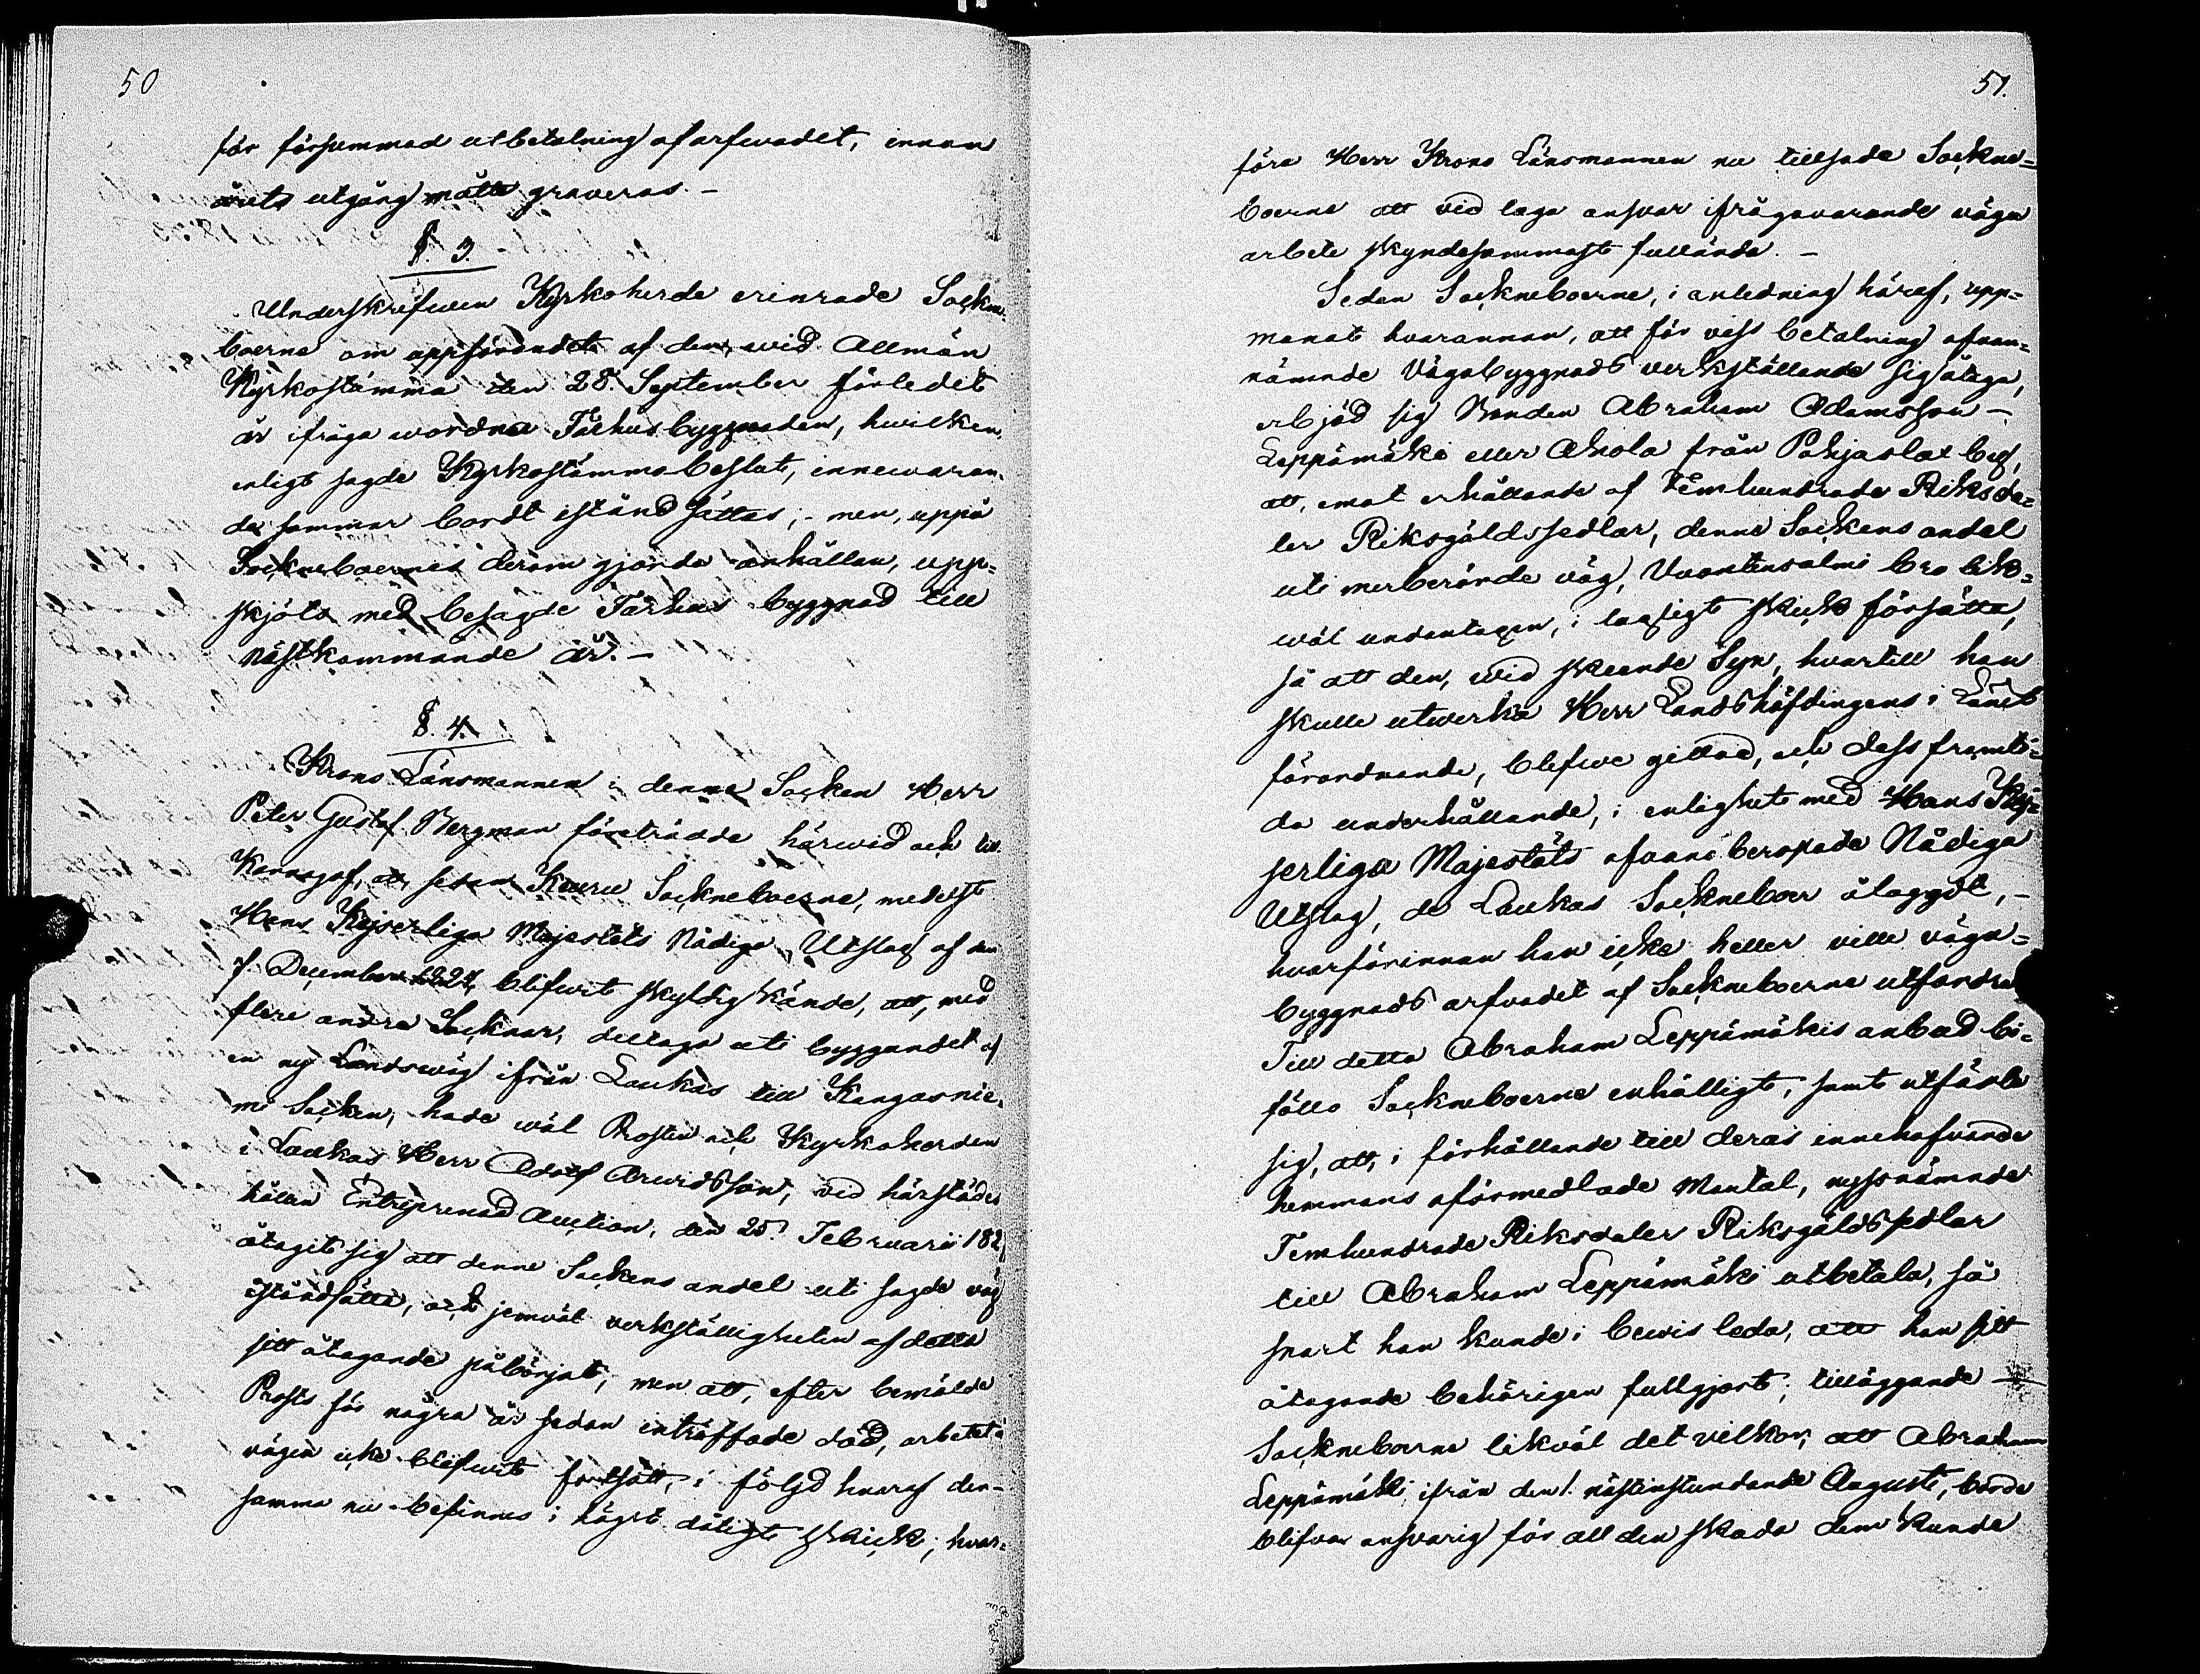 50
för försummad utbetalning af arfwodet, innan
årets utgång måtte graveras. -
§. 3.
Underskrefwen Kyrkoherde erinrade Sockne-
boerne om uppförandet af den, wid Allmän
Kyrkostämma den 28. September förledet
år ifråga wordna Fårhusbyggnaden, hwilken,
enligt sagde Kyrkostämmobeslut, innewaran-
de sommar bordt iståndsättas; - men, uppå
Sockneboernes derom gjorda anhållan, upp=
skjöts med besagde Fårhus byggnad till
nästkommande år. -
§. 4.
Krono Länsmannen i denna Socken Herr
Peter Gustaf Bergman företrädde härwid och till
Kännagaf, att, sedan Keuru Sockneboerne, medelst
Hans Kejserliga Majestets Nådiga Utslag af den
7. December 1824, blifwit skyldig kände, att, med
flere andra Socknar, deltaga uti byggandet af
en ny Landswäg ifrån Laukas till Kangasnie-
mi Socken, hade wäl Prosten och Kyrkoherden
i Laukas Herr Adolf Arwidsson, vid härstädes
hållen Entreprenad Auction, den 25. Februarii 182
åtagit sig att denne Sockens andel uti sagde väg
iståndsätta, och jemväl verkställigheten af detta
sitt åtagande påbörjat; men att, efter bemälde
Prosts för några år sedan inträffade död, arbetet å
vägen icke blifwit fortsatt, i följd hvaraf den-
samma nu befinnes i högst dåligt skick; hvar=
51.
före Herr Krono Länsmannen nu tillsade Sockne=
boerne att vid laga ansvar ifrågavarande vägu
arbete skyndesammast fullända. -
Sedan Sockneboerne, i anledning häraf, upp=
manat hvarannan, att för viss betalning ofvan=
nämnde Vägabyggnads verkställande sig åtaga,
erbjöd sig Bonden Abraham Adamsson -
Leppämäki eller Ahola från Pohjaslax by,
att, emot erhållande af Femhundrade Riksda=
ler Riksgäldssedlar, denne Sockens andel
uti merberörde väg, Vuontensalmi bro lik=
wäl undantagen, i lagligt skick försätta,
så att den, wid skeende Syn, hvartill han
skulle utverka Herr Landshöfdingens i Länet
förordnande, blefwe gillad, och dess framti=
da underhållande, i enlighet med Hans Kej=
serliga Majestäts ofvanberopade Nådiga
Utslag, de Laukas Sockneboer ålagdt, -
hvarförinnan han icke heller ville vägu=
byggnads arfvodet af Sockneboerne utfordra
Till detta Abraham Leppämäkis anbud bi=
föllo Sockneboerne enhälligt, samt utfäste
sig, att, i förhållande till deras innehafvande
hemmans oförmedlade Mantal, nyssnämnde
Femhundrade Riksdaler Riksgäldssedlar
till Abraham Leppämäki utbetala, så
snart han kunde i bewis leda, att han sitt
åtagande behörigen fullgjort; tilläggande -
Sockneboerne likväl det vilkor, att Abraham
Leppämäki, ifrån den 1. nästinstundande Augusti, borde
blifva ansvarig för all den skada dem kunde